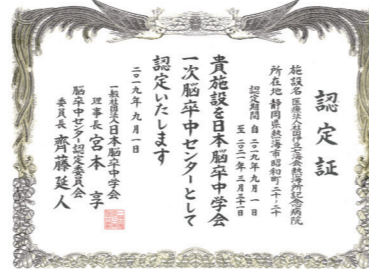 認定証
施設名 医療法人社団伊豆七海会熱海所記念病院
所在地 静岡県熱海市昭和町二十-二十
認定期間 自 二〇一九年 九月 一日
至 二〇二一年 三月三十一日
貴施設を日本脳卒中学会
一次脳卒中センターとして
認定いたします
二〇一九年 九月一日
一般社団法人日本脳卒中学会
理事長 宮本 享
脳卒中センター認定委員会
委員長 齊藤延人